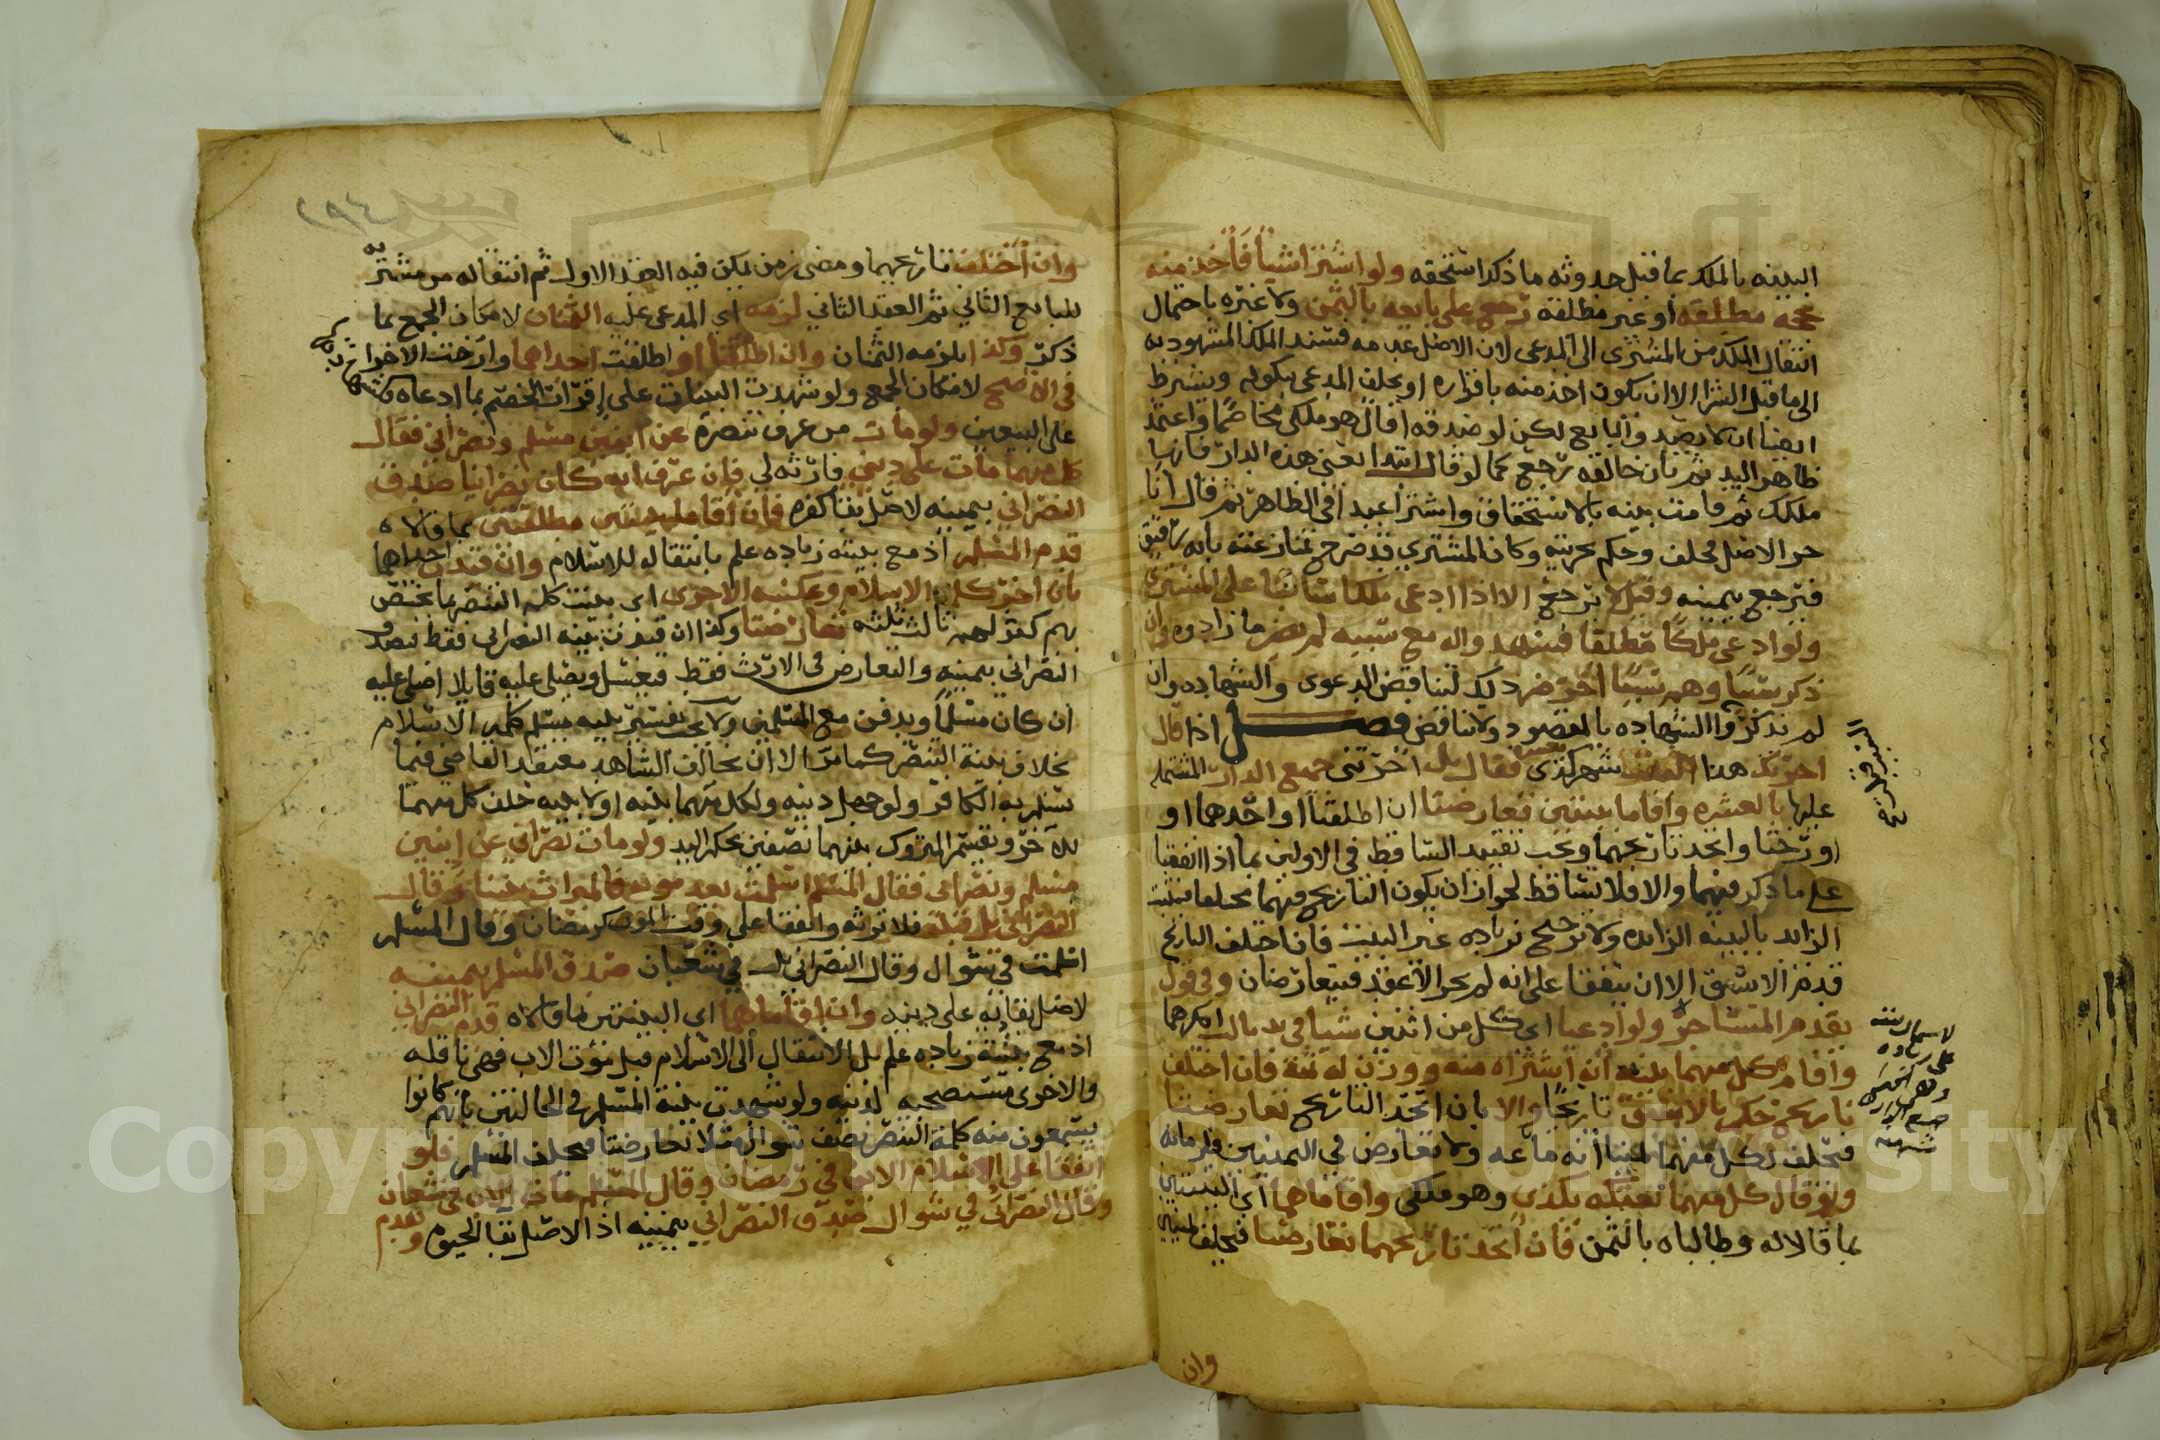 البينه بالملك بما قبل حدوثه ما ذكر استحقه ولو اشترا شيا فأخذ منه
بحجه مطلقه او غير مطلقه رجع على بايعه بالثمن ولا عبره باحتمال
انتقال الملك من المشترى الى المدعى لان الاصل عدمه فستند الملك المشهود به
الى ما قبل الشرا الا ان يكون اخذ منه باقراره او بحلف المدعى بنكوله ويشرط
ايضا ان لا يصد والبايع لكن لو صدقه اقال هو ملكى مخاصما واعتمد
ظاهر اليد ثم بان خالفه رجع كما لو قال ابتدا بعنى هذه الدار فانها
ملكك ثم قامت بينه بالاستحقاق واشترا عبدا فى الظاهر ثم قال انا
حر الاصل فحلف وحكم بحريته وكان المشتري قد صرح بمنازعته بانه رقيق
فيرجع بيمينه وقيل لا يرجع الا اذا ادعى ملكا سابقا على المشترى
ولو ادعى ملكا مطلقا فشهدوا له مع سببه لم يضر ما زادوه وان
ذكر سببا وهم سببا اخر ضر ذلك لتناقض الدعوى والشهاده وان
لم يذكروا الشهاده بالمقصود ولا تناقض فصل اذا قال
اجرتك هذا البيت شهر كذى بعشره فقال بل اجرتنى جميع الدار المشتمله
عليها بالعشره واقاما بينتين تعارضتا ان اطلقتا او احدهما او
او رختا واتحد تاريخهما ويجب تقييد التساقط فى الاولين بما اذا اتفقا
على ما ذكر فيهما والا فلا تساقط لجواز ان يكون التاريخ فيهما مختلفا فيثبت
الزايد بالبينه الزايده ولا ترجيح بزياده غير البينت فان اختلف التاريخ
قدم الاسبق الا ان يتفقا على انه لم يجر الا عقد فيتعارضان وفى قول
يقدم المستاجر ولو ادعيا اى كل من اثنين شيا فى يد ثالث انكرهما
واقام كل منهما بينه انه اشتراه منه ووزن له ثمنه فان اختلف
تاريخ حكم بالاسبق تاريخا والا بان اتحد التاريخ تعارضتا
فيحلف لكل منهما يمينا انه ما باعه ولا تعارض فى الثمنين فيلزمانه
ولو قال كل منهما بعتكه بكذى وهو ملكى واقاماهما اى البينتين
بما قالاله وطالباه بالثمن فان اتحد تاريخهما تعارضتا فيحلف يمينين
وان
٢٩٤
وان اختلف تاريخهما ومضى زمن يمكن فيه العقد الاول ثم انتقاله من مشتريه
للبايع الثاني ثم العقد الثاني لزمه اي المدعى عليه الثمنان لامكان الجمع بما
ذكر وكذا يلزمه الثمنان وان اطلقتا او اطلقت احداهما وارخت الاخرا
فى الاصح لامكان الجمع ولو شهدت البينات على اقرار الخصم بما ادعاه
على البيعين ولو مات من عرف تنصره عن ابنين مسلم ونصرانى فقال
كل منهما مات على ديني فارثه لي فان عرف انه كان نصرانيا صدق
النصراني بيمينه لاصل بقا كفره فان اقاما بينتين مطلقتين بما قالاه
قدم المسلم اذ مع بينته زياده علم بانتقاله للاسلام وان قيدت احداهما
بان اخر كلامه الاسلام وعكسه الاخرى اى بينت كلمه التنصر بما يختص
بهم كقولهم ثالث ثلثه تعارضتا وكذا ان قيدت بينه النصرانى فقط فيصدق
النصراني بيمينه والتعارض فى الارث فقط فيغسل ويصلى عليه قايلا اصلى عليه
ان كان مسلما ويدفن مع المسلمين ولا يجب تفسير بينه مسلم كلمه الاسلام
بخلاف بينة التنصر كما مر الا ان يخالف الشاهد معتقد القاضي فيما
يسلم به الكافر ولو جهل دينه ولكل منهما بينه او لا بينه حلف كل منهما
للاخر وتقسم المتروك بينهما نصفين بحكم اليد ولو مات نصرانى عن ابنين
مسلم ونصرانى فقال المسلم اسلمت بعد موته فالميراث بيننا وقال
النصراني بل قبله فلا ترثه واتفقا على وقت الموت كرمضان وقال المسلم
اسلمت في شوال وقال النصراني بل في شعبان صدق المسلم بيمينه
لاصل بقائه على دينه وان اقاماهما اى البينتين بما قالاه قدم النصراني
اذ مع بينته زياده علم بل الانتقال الى الاسلام قبل موت الاب فهى ناقله
والاخرى مستصحبه لدينه ولو شهدت بينة المسلم فى الحالتين بانهم كانوا
يسمعون منه كلمة التنصر نصف شوال مثلا تعارضتا فيحلف المسلم فلو
اتفقا على اسلام الابن في رمضان وقال المسلم مات الاب في شعبان
وقال النصراني في شوال صدق النصراني بيمينه اذ الاصل بقا الحيوه وتقدم